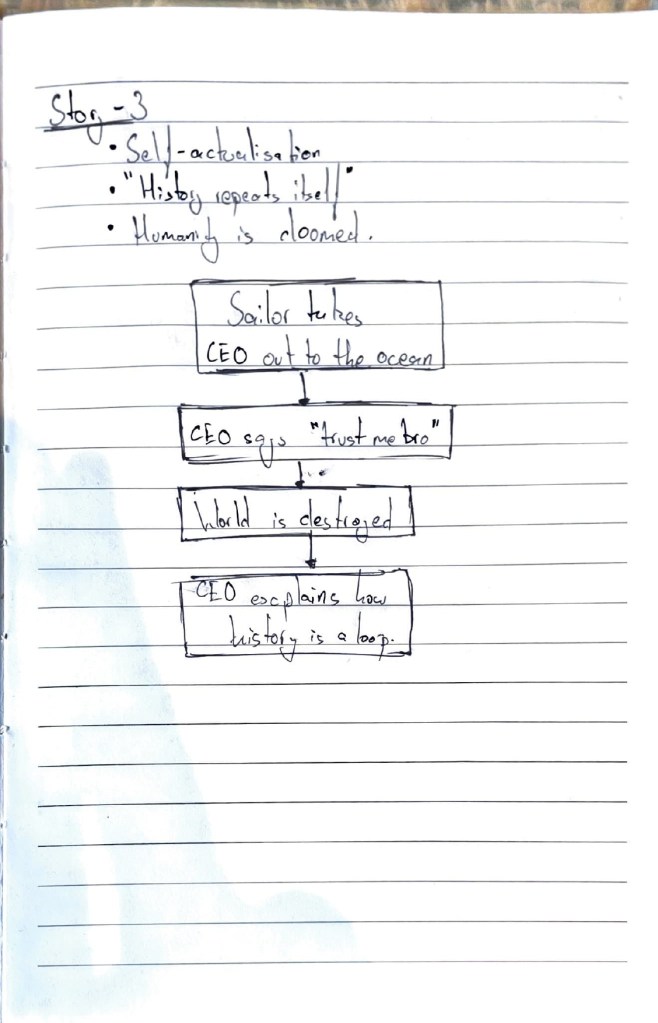 Story-3
• Self-actualisation
• "History repeats itself"
• Humanity is doomed.
Sailor takes
CEO out to the ocean
CEO says "trust me bro"
World is destroyed
CEO explains how
history is a loop.